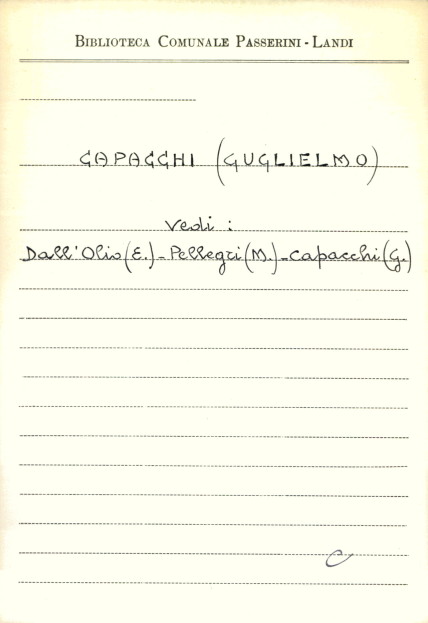 BIBLIOTECA COMUNALE PASSERINI - LANDI
CAPACCHI (GUGLIELMO)
Vedi :
Dall'Olio (E.) - Pellegri (M.) - Capacchi (G.)
C